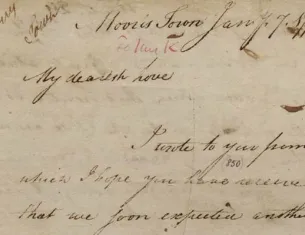 Morris Town Jany. 7.
My dearest love
I wrote to you from
850
which I hope you have receive
that we soon expected anoth